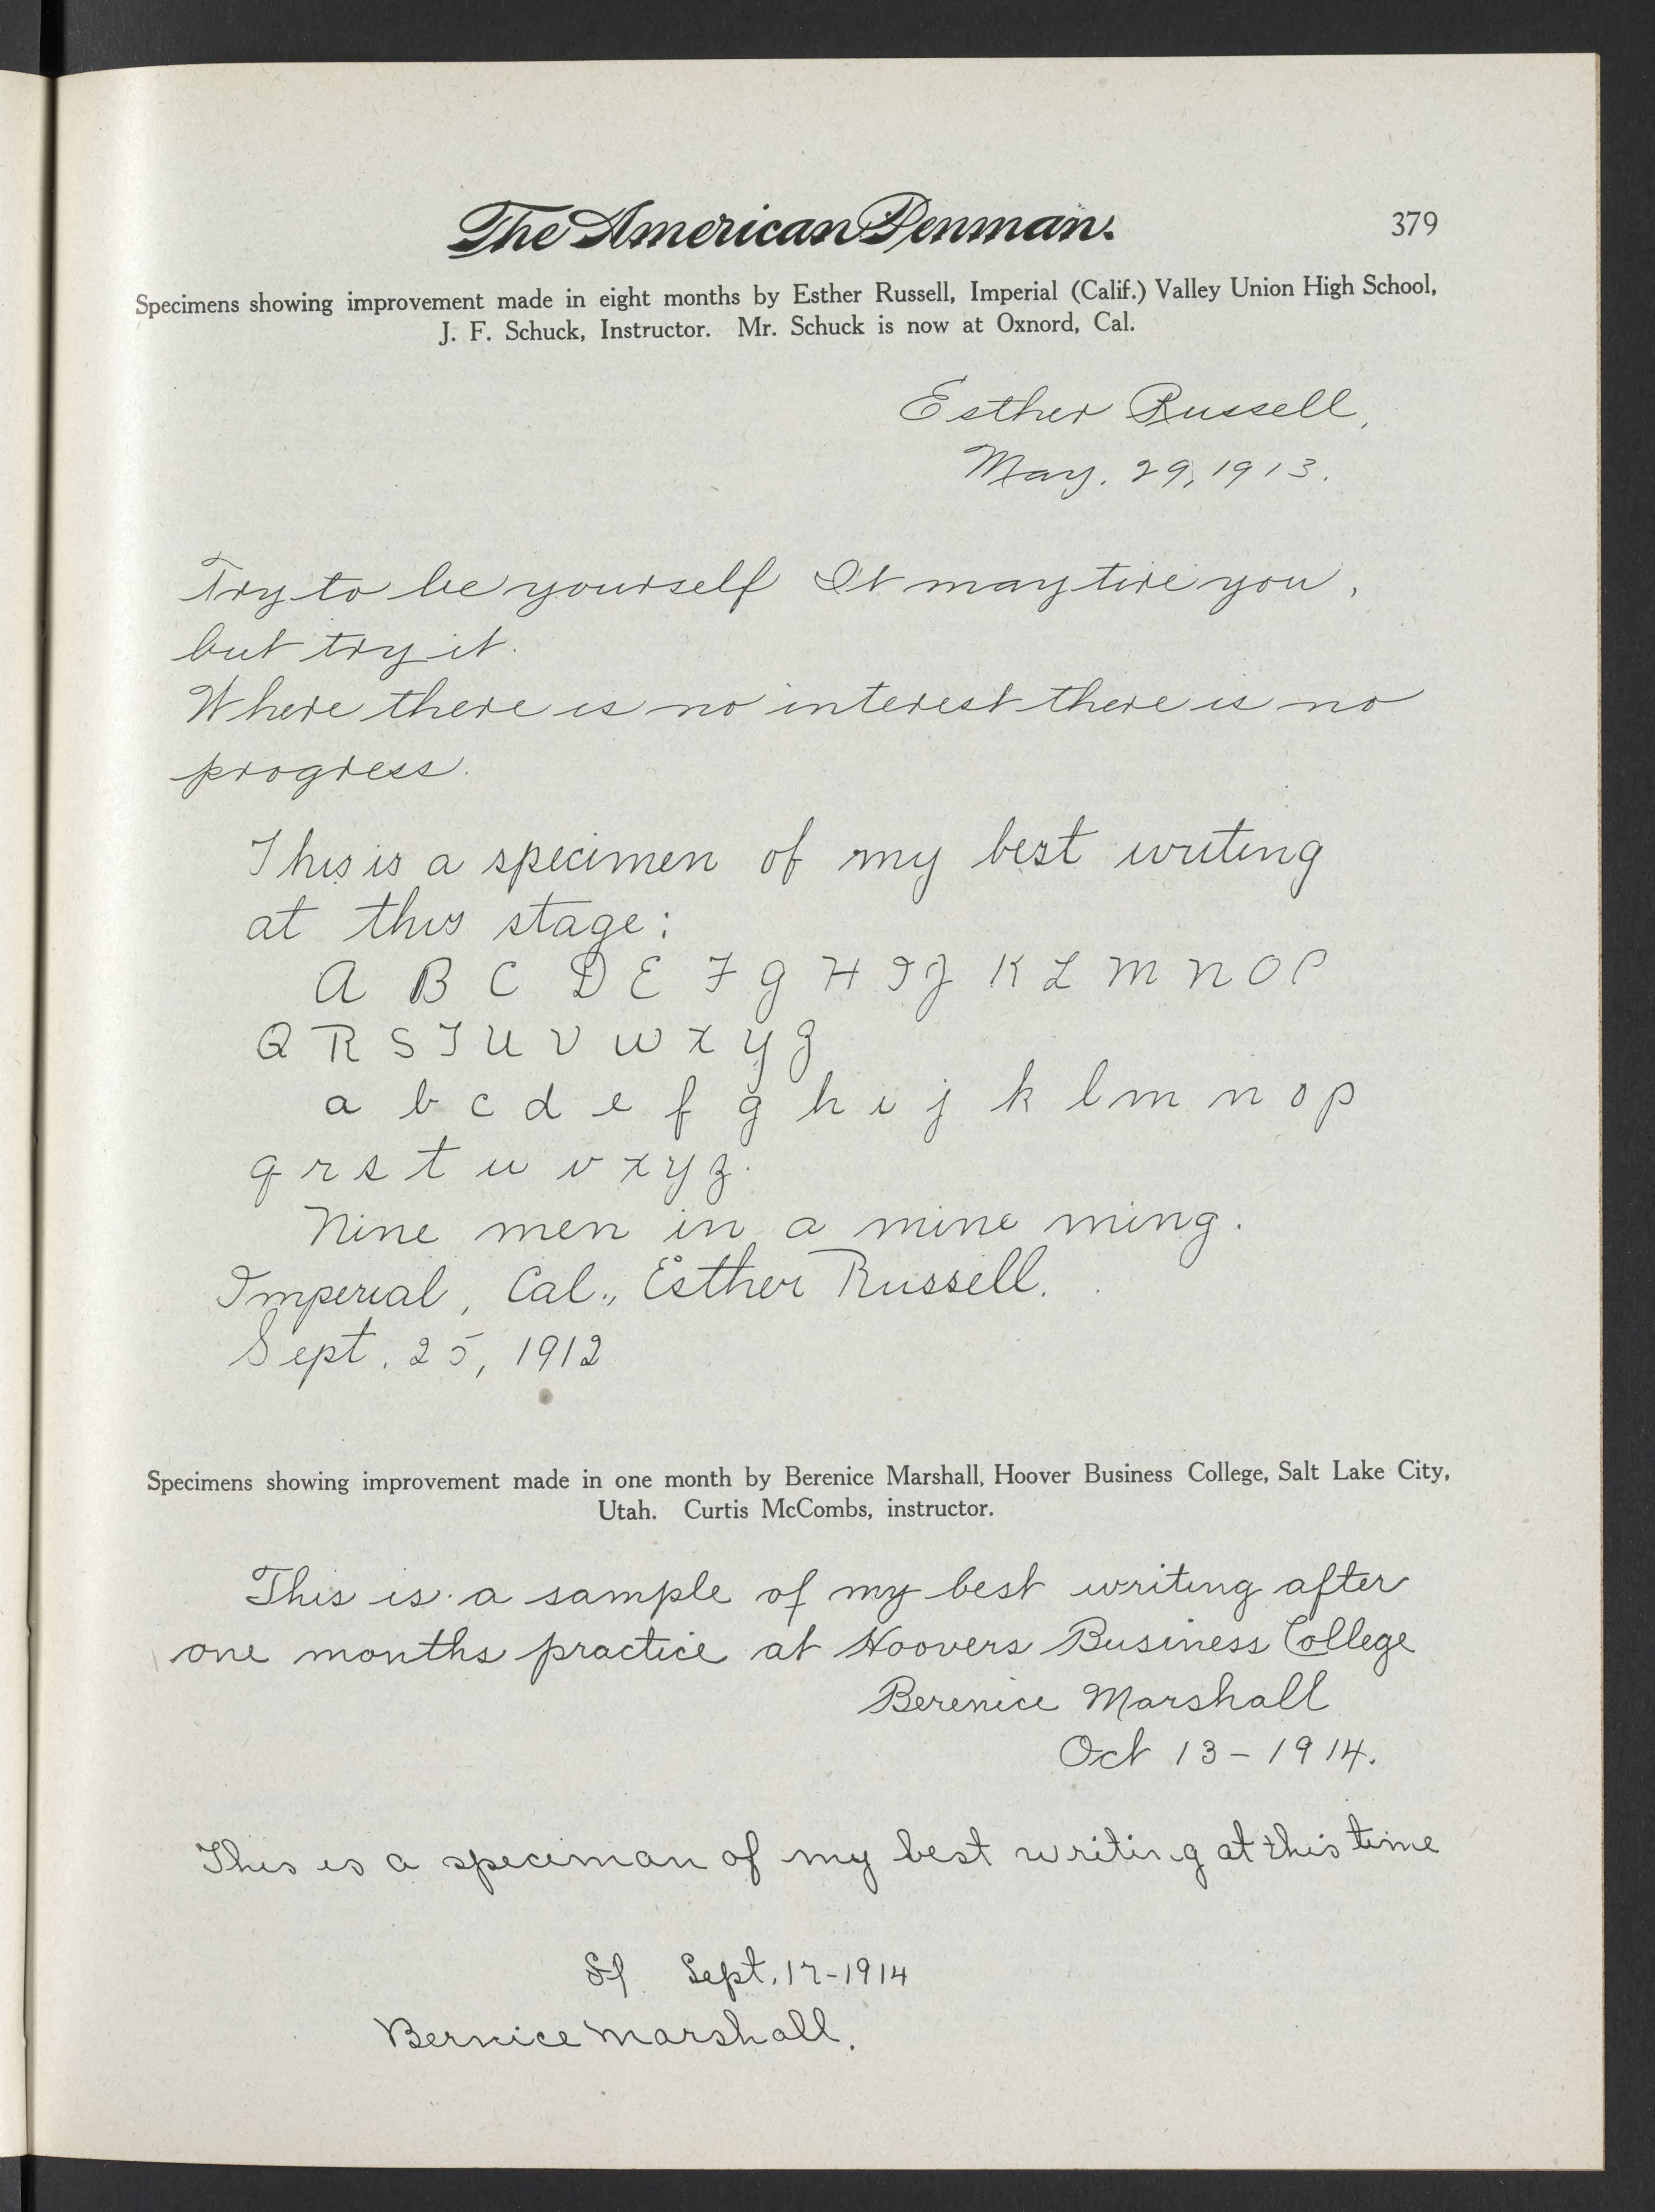 The American Penman.
379
Specimens showing improvement made in eight months by Esther Russell, Imperial (Calif.) Valley Union High School,
J. F. Schuck, Instructor. Mr. Schuck is now at Oxnord, Cal.
Esther Russell,
May. 29, 1913.
Try to be yourself It may tire you,
but try it.
Where there is no interest there is no
progress.
This is a specimen of my best writing
at this stage:
A B C D E F G H I J K L M N O P
Q R S T U V W X Y Z
a b c d e f g h i j k l m n o p
q r s t u v x y z.
Nine men in a mine ming.
Imperial, Cal., Esther Russell.
Sept. 25, 1912
Specimens showing improvement made in one month by Berenice Marshall, Hoover Business College, Salt Lake City,
Utah. Curtis McCombs, instructor.
This is a sample of my best writing after
one months practice at Hoovers Business College
Berenice Marshall
Oct 13 - 1914.
This is a speciman of my best writing at this time
Sept. 17-1914
Bernice Marshall.